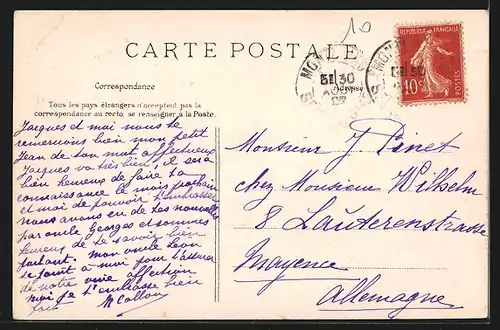 10
CARTE POSTALE
RÉPUBLIQUE FRANÇAISE
10c
POSTES
Correspondance
Adresse
Tous les pays étrangers n'acceptent pas la
correspondance au recto, se renseigner à la Poste.
Jacques et moi nous te
remercions bien mon petit
Jean de ton mot affectueux
Jacques va très bien, il sera
bien heureux de faire ta
connaissance le mois prochain
et moi de pouvoir t'embrasser
nous avons eu de tes nouvelles
par oncle Georges et sommes
heureux de te savoir bien
portant. Mon oncle Léon
se joint à moi pour t'assurer
de notre vive affection
moi je t'embrasse bien
fort
Monsieur J Pinet
chez Monsieur Wilhelm
8 Lauterenstrasse
Mayence
Allemagne